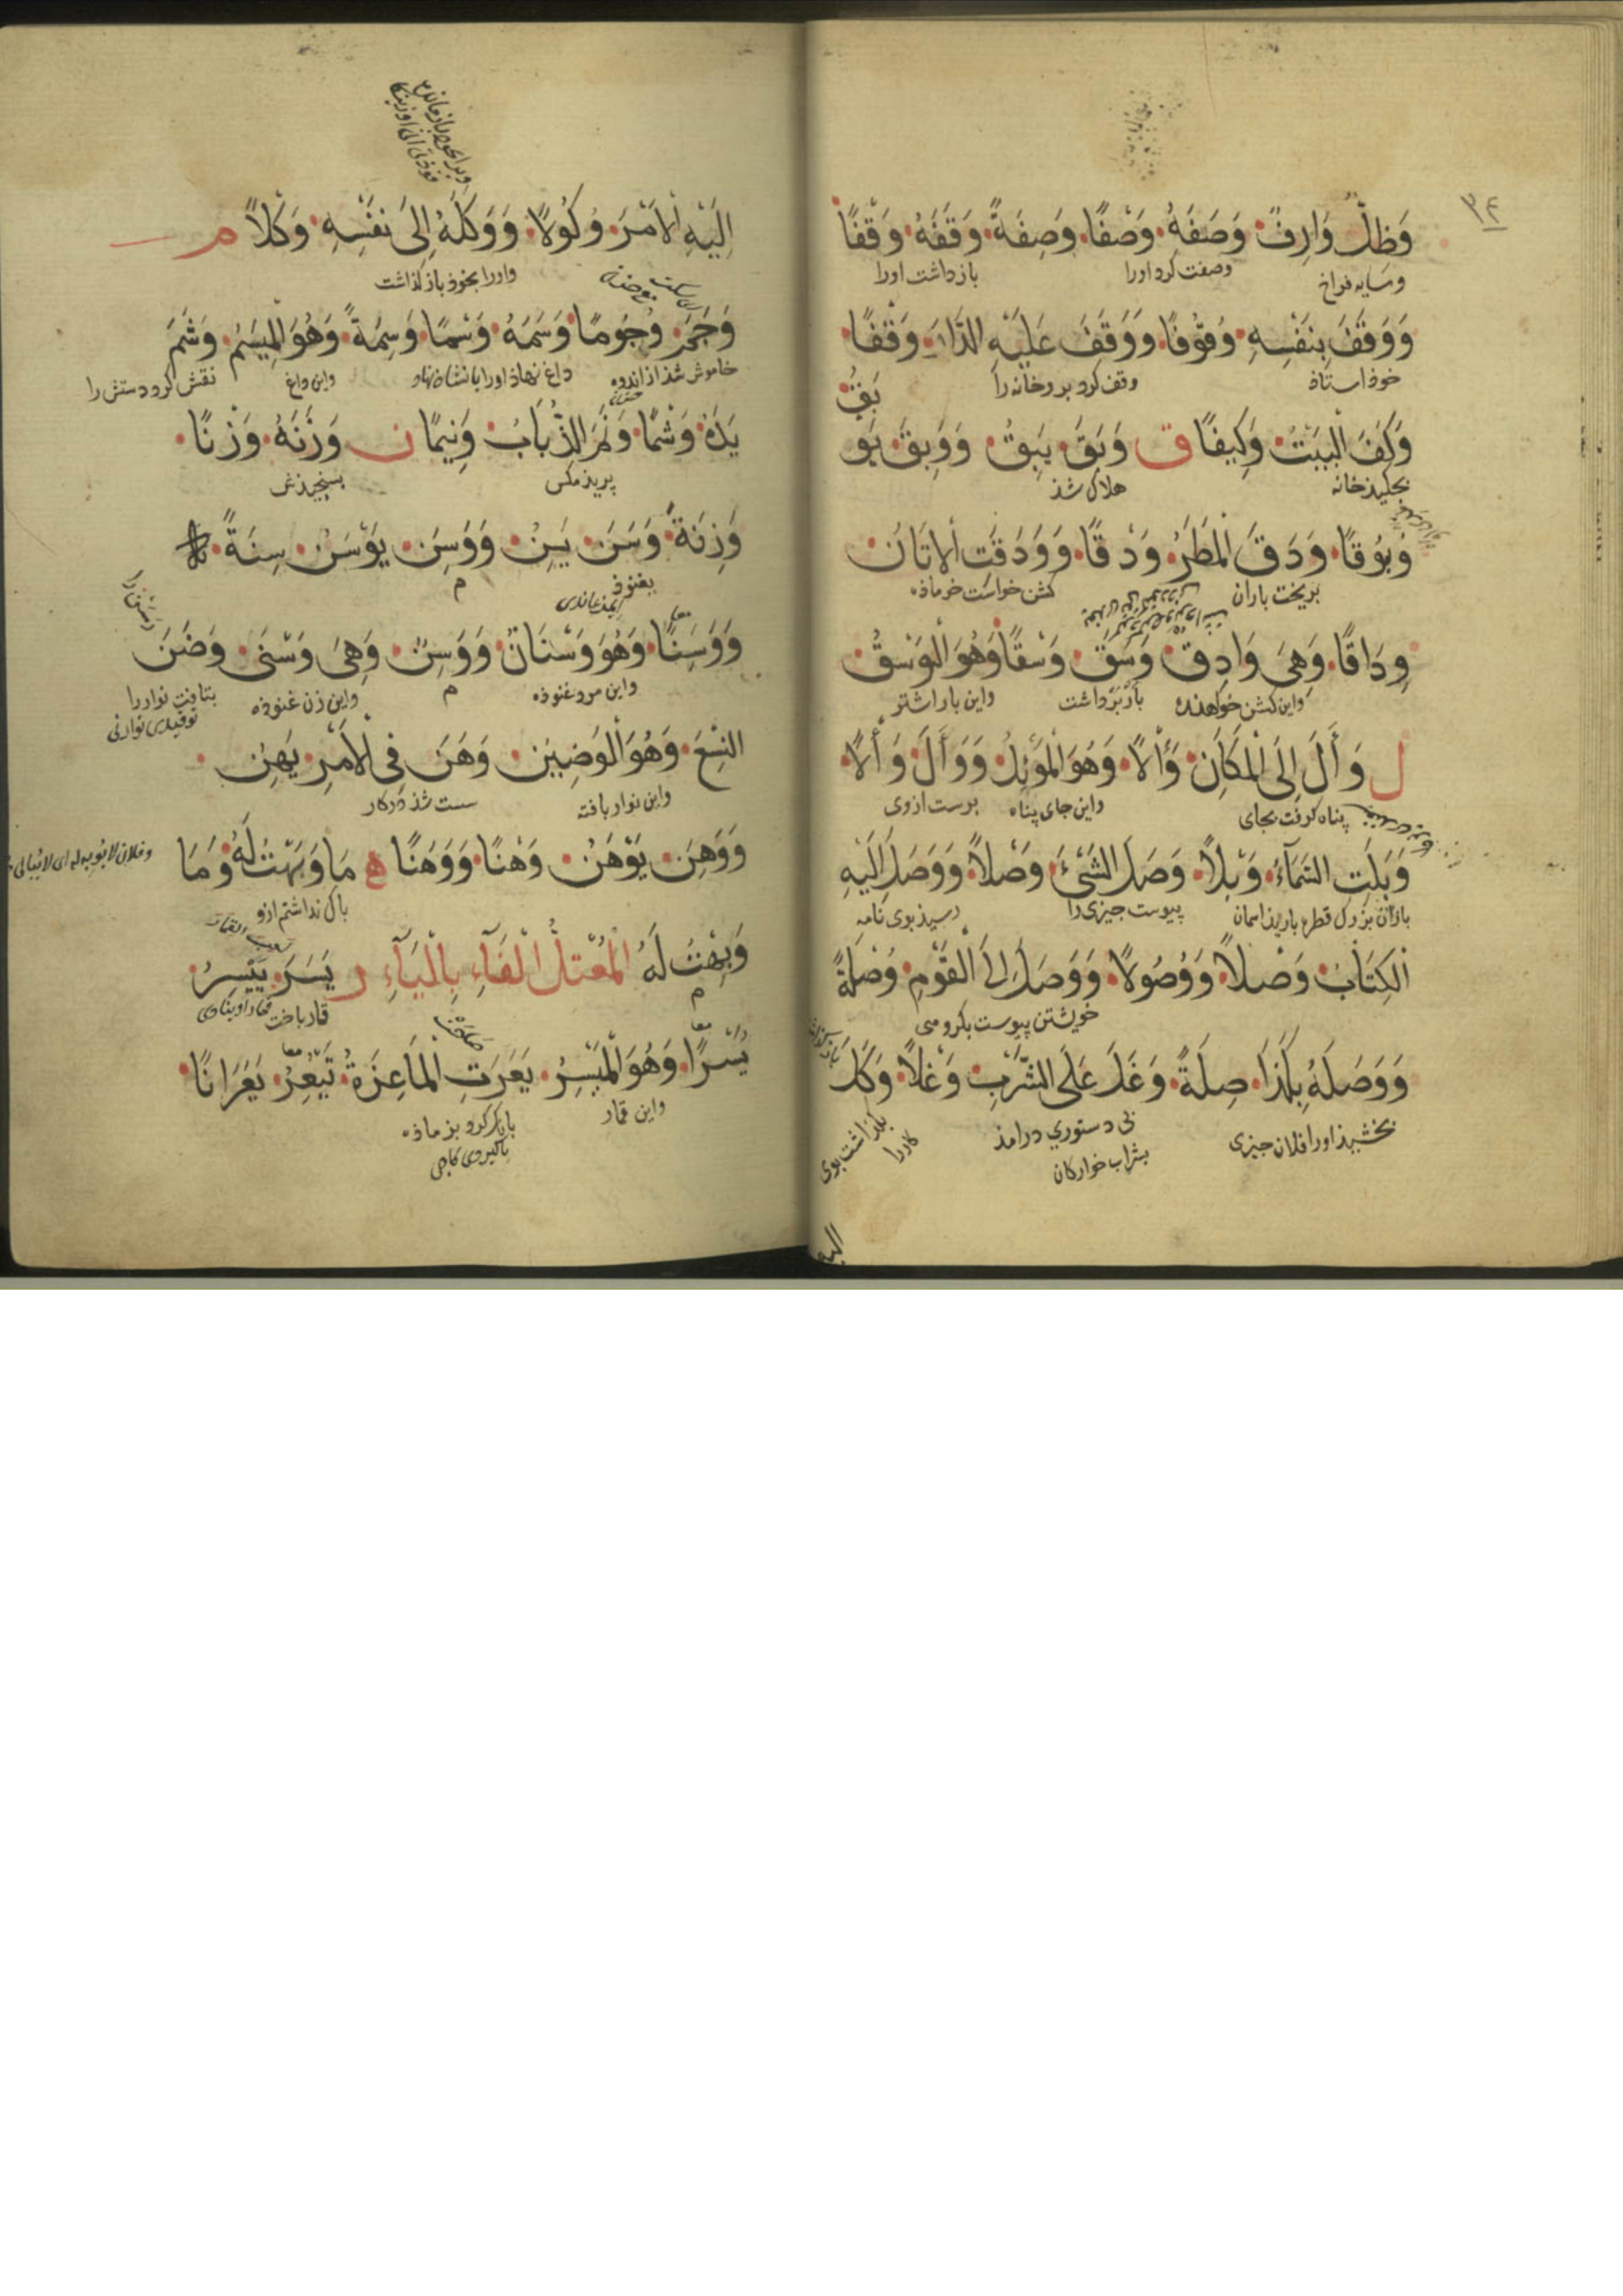 ٣٤
وَظِلٌّ وَارِفٌ وَصَفَهُ وَصْفًا وَصِفَةً وَقَفَهُ وَقْفًا
وسایه فراخ وصفت کرد اورا بازداشت اورا
وَوَقَفَ بِنَفْسِهِ وُقُوْفًا وَوَقَفَ عَلَيْهِ الدَّارَ وَقْفًا
خوذ استاذ وقف کرد بر وخانه را
وَكَفَ الْبَيْتُ وَكِيفًا ق وَبَقَ يَبِقُ وَوَبِقَ يَوْبَقُ
بجکیذ خانه هلاک شذ
وُبُوْقًا وَدَقَ الْمَطَرُ وَدْقًا وَوَدَقَتِ الْاتَانُ
بریخت باران کشن خواست خر ماذه
وِدَاقًا وَهِيَ وَادِقٌ وَسَقَ وَسْقًا وَهُوَ الْوَسْقُ
واین کشن خواهنده بار برداشت واین بار اشتر
ل وَأَلَ إِلَى الْمَكَانِ وَأْلًا وَهُوَ الْمَوْئِلُ وَوَأَلَ وَأْلًا
پناه کرفت بجای واین جای پناه برست ازوی
وَبَلَتِ السَّمَآءُ وَبْلًا وَصَلَ الشَّيْءَ وَصْلًا وَوَصَلَ إِلَيْهِ
باران بزرک قطره بارید اسمان پیوست جیزی را رسیذ بوی نامه
الْكِتَابُ وَصْلًا وَوُصُولًا وَوَصَلَ إِلَى الْقَوْمِ وُصْلَةً
خویشتن پیوست بکروهی
وَوَصَلَهُ بِكَذَا صِلَةً وَغَلَ عَلَى الشَّرْبِ وَغْلًا وَكَلَ
بخشیذ اورا فلان جیزی بی دستوری درامذ بکذاشت بوی
بشراب خوارکان کار را
الیه
إِلَيْهِ الْأَمْرَ وُكُولًا وَوَكَلَهُ إِلَى نَفْسِهِ وَكْلًا م
واورا بخوذ باز کذاشت
وَجَمَ وُجُومًا وَسَمَهُ وَسْمًا وَسِمَةً وَهُوَ الْمِيْسَمُ وَشَمَ
خاموش شذ از اندوه داغ نهاذ اورا یا نشان نهاد واین داغ نقش کرد دستش را
يَدَهُ وَشْمًا وَنَمَ الذُّبَابُ وَنِيمًا ن وَزَنَهُ وَزْنًا
پریذ مکس بسنجیذش
وَزِنَةً وَسَنَ يَسِنُ وَوَسِنَ يَوْسَنُ سِنَةً
بغنوذ م
وَوَسَنًا وَهُوَ وَسْنَانُ وَوَسِنٌ وَهِيَ وَسْنَى وَضَنَ
واین مرد غنوذه م واین زن غنوذه بتافت نوار را
النِّسْعَ وَهُوَ الْوَضِيْنُ وَهَنَ فِي الْأَمْرِ يَهِنُ
واین نوار بافته سست شذ در کار
وَوَهِنَ يَوْهَنُ وَهْنًا وَوَهَنًا ه مَا وَبَهْتُ لَهُ وَمَا
باک نداشتم ازو
وَبِهْتُ لَهُ الْمُعْتَلُّ الْفَآءِ بِالْيَآءِ ر يَسَرَ يَيْسِرُ
م قمار باخت
يَسْرًا وَهُوَ الْمَيْسِرُ يَعَرَتِ الْمَاعِزَةُ تَيْعِرُ يَعَرَانًا
واین قمار بانک کرد بز ماذه